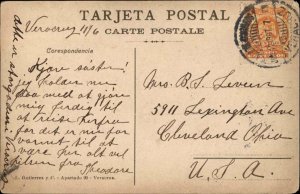 TARJETA POSTAL
CARTE POSTALE
Veracruz 11/6
Correspondencia
Kjære søster!
Jeg holder nu
paa med at gjøre
mig færdig til
at reise herfra
for det er nu for
varmt til at
være her alt vel
hilsen fra Theodore
Mrs. B. L. Severn
5911 Lexington Ave
Cleveland Ohio
U. S. A.
J. Gutierrez y Cª. - Apartado 90 - Veracruz.